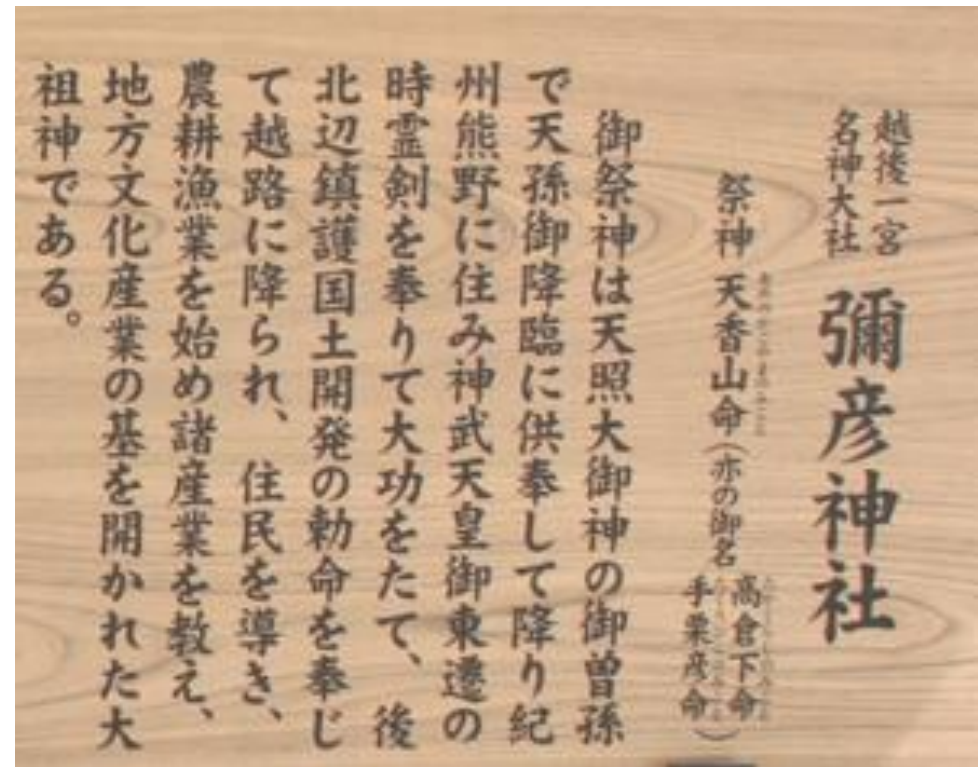 越後一宮
名神大社
彌彦神社
祭神 天香山命(亦の御名
高倉下命
手栗彦命)
御祭神は天照大御神の御曽孫
で天孫御降臨に供奉して降り紀
州熊野に住み神武天皇御東遷の
時霊剣を奉りて大功をたて、後
北辺鎮護国土開発の勅命を奉じ
て越路に降られ、住民を導き、
農耕漁業を始め諸産業を教え、
地方文化産業の基を開かれた大
祖神である。